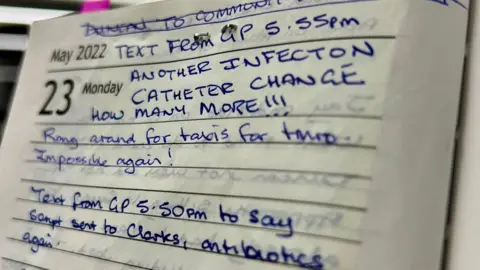 TO COMMUNI
May 2022 TEXT FROM GP 5.55pm
23 Monday ANOTHER INFECTON
CATHETER CHANGE
HOW MANY MORE!!!
Rang around for taxis for tmro.
Impossible again!
Text from GP 5.50pm to say
script sent to Clarks, antibiotics
again.